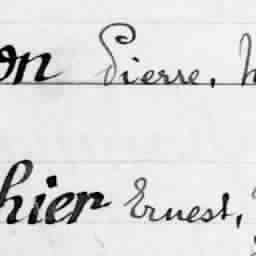 on Pierre,
hier Ernest,